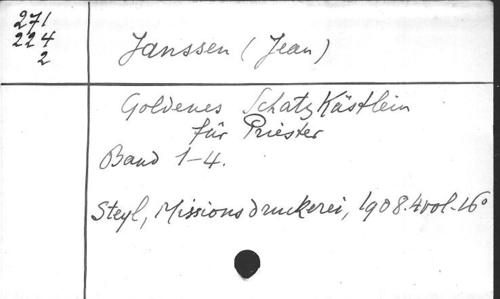 271
224
2
Janssen (Jean)
Goldenes Schatz Kästlein
für Priester
Band 1-4.
Steyl, Missionsdruckerei, 1908. 4 vol. 16°